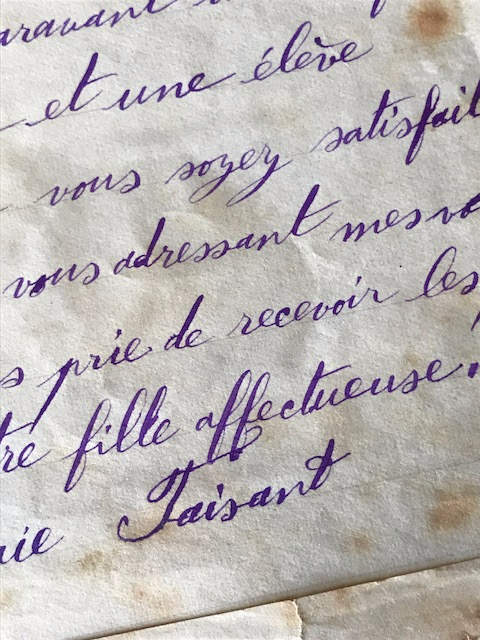 et une élève
vous soyez satisfait
vous adressant mes
prie de recevoir les
fille affectueuse.
Taisant